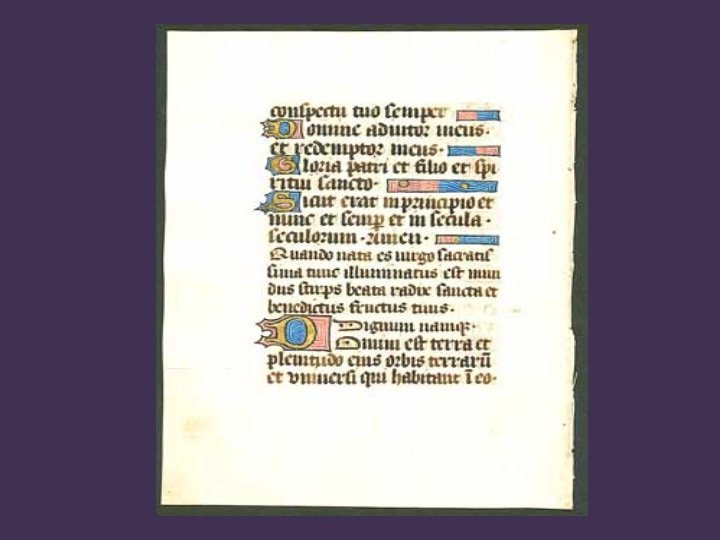 conspectu tuo semper
Domine adiutor meus.
et redemptor meus.
Gloria patri et filio et spi
ritui sancto.
Sicut erat in principio et
nunc et semp et in secula.
seculorum. Amen.
Quando nata es uirgo sacratis
sima tunc illuminatus est mun
dus stirps beata radix sancta et
benedictus fructus tuus.
Dignum namq.
Domini est terra et
plenitudo eius orbis terrarū
et vniuersi qui habitant ī eo.